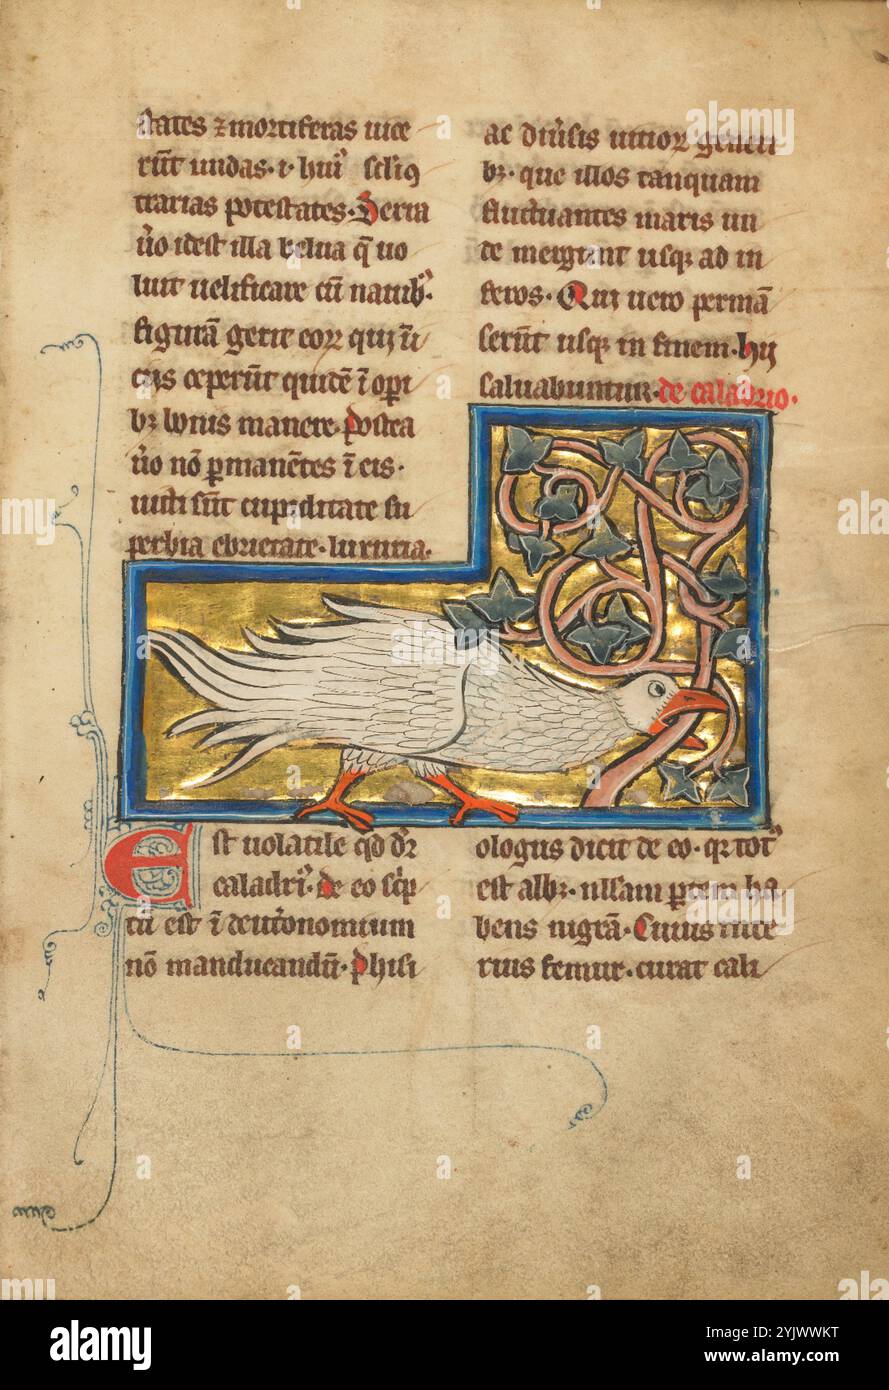 states ⁊ mortiferas uice
rūt undas· i· hui᷒ scli ꝯ
trarias potestates· Serra
u̕o idest illa belua q̄ uo
luit uelificare cū nauib᷒·
figurā gerit eoꝝ qui ī i
ciis ceperūt quidē ī opi
bꝫ bonis manere· Postea
u̕o nō ꝑmanētes ī eis·
uicti sūt cupiditate su
perbia ebrietate· luxuria·
ac diu̕sis uitioꝝ generi
bꝫ· que illos tanquam
fluctuantes maris un
de mergunt usqꝫ ad in
feros· Qui uero permā
serūt usqꝫ in finem· hii
saluabuntur· de caladrio·
Est uolatile qd dr̄
caladri᷒· de eo sc̄p
tū est ī deut̕onomium
nō manducandū· Phisi
ologus dicit de eo· qꝛ tot᷒
est alb᷒· nllam ꝑtem ha
bens nigrā· Cuius inte
rius femur· curat cali
alamy
Image ID: 2YJWWKT
www.alamy.com